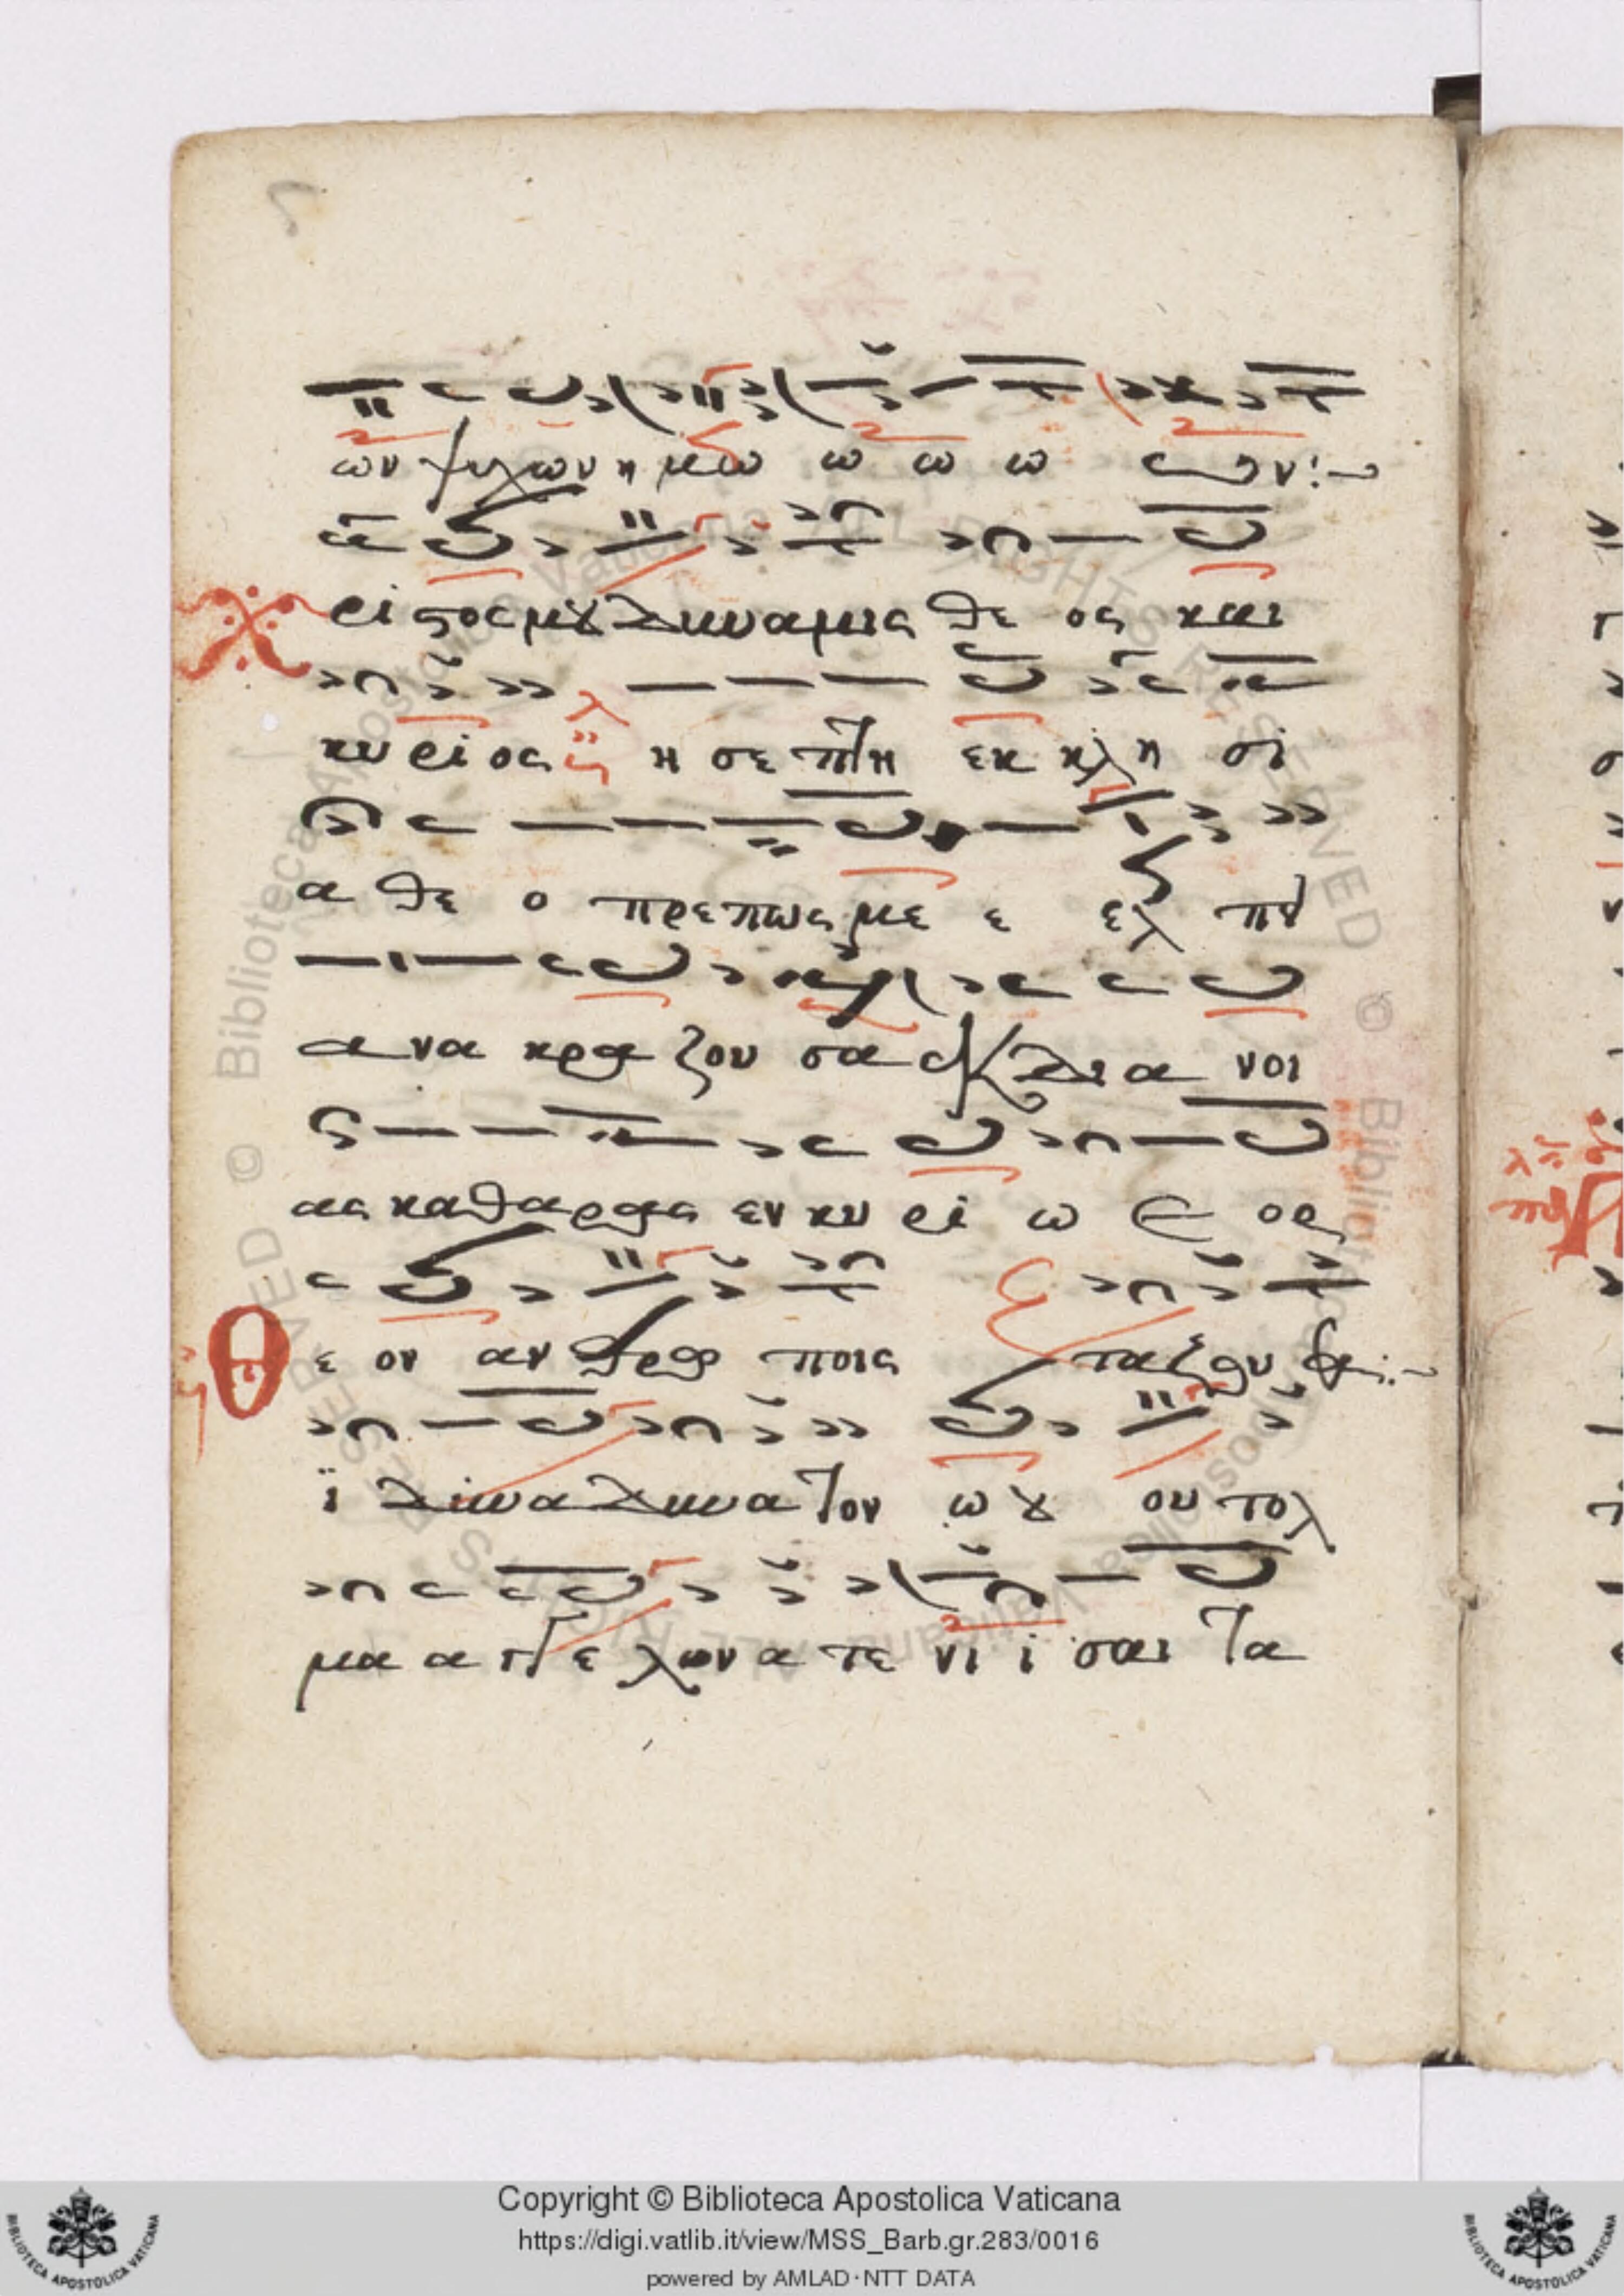 ων ψυχων η μω ω ω ω ων:
Χ ρι στος μου δυναμις θε ος και
κυ ρι ος η σε πτη εκ κλη σι
α θε ο πρεπως με ε ελ πει
α να κρα ζου σα εκ δια νοι
ας καθαρας εν κυ ρι ω ε ορ
ταζουσα:
Θ ε ον αν θρω ποις
ι δειν αδυνατον ω ου ου τολ
μα α γγ ε λων α τε νι ι σαι τα
Copyright © Biblioteca Apostolica Vaticana
https://digi.vatlib.it/view/MSS_Barb.gr.283/0016
powered by AMLAD·NTT DATA